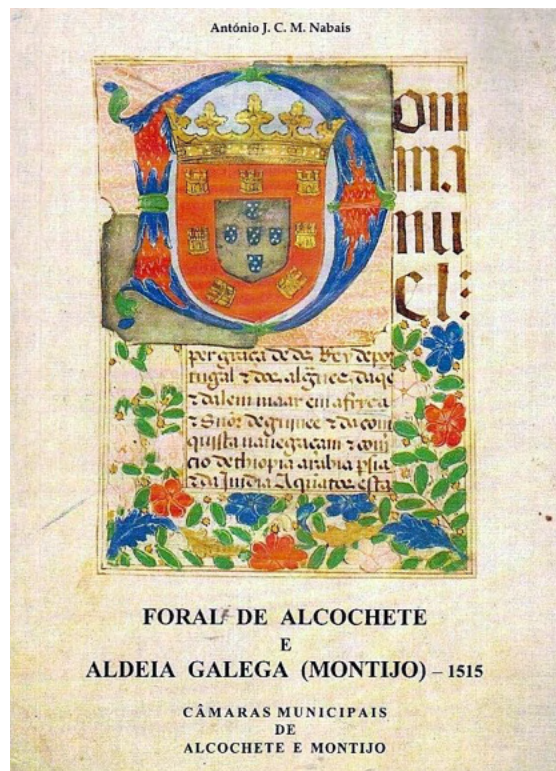 António J. C. M. Nabais
D
om
ma
nu
el:
per graça de ds Rey de por
tugal z dos algarues daqe
z dalem maar em africa
z Snõr de guinee z da com
quista nauegaçam z comr
cio dethiopia arabia psia
z da Jndia A quãtos esta
FORAL DE ALCOCHETE
E
ALDEIA GALEGA (MONTIJO) – 1515
CÂMARAS MUNICIPAIS
DE
ALCOCHETE E MONTIJO